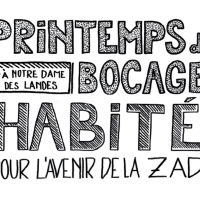 PRiNTEMPS d
À NOTRE DAME
DES LANDES
BOCAGE
HABiTÉ
POUR L'AVENIR DE LA ZAD